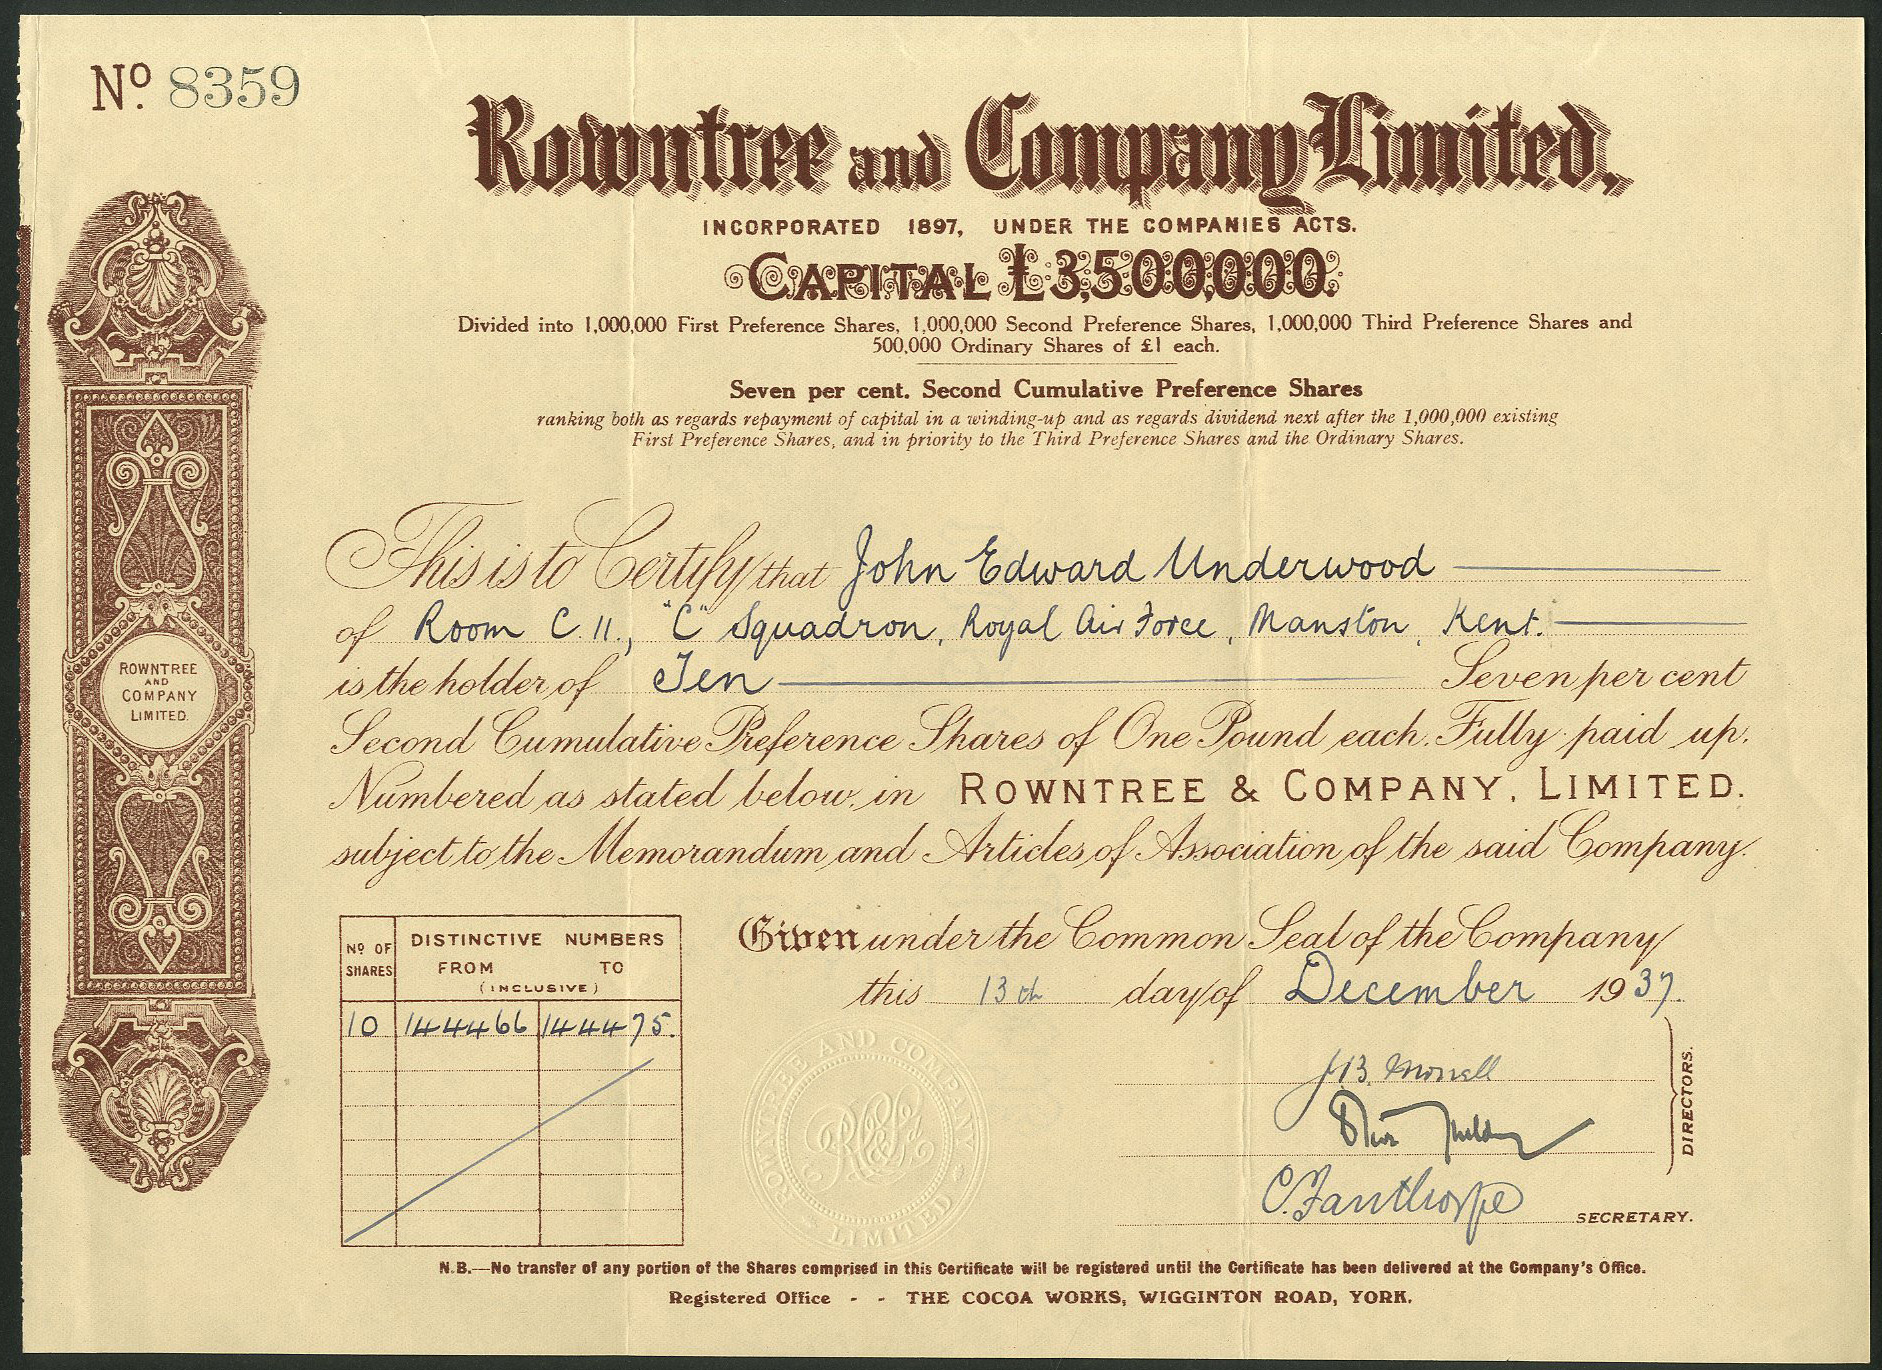 Nº. 8359
Rowntree and Company Limited,
INCORPORATED 1897, UNDER THE COMPANIES ACTS.
CAPITAL £3,500,000.
Divided into 1,000,000 First Preference Shares, 1,000,000 Second Preference Shares, 1,000,000 Third Preference Shares and
500,000 Ordinary Shares of £1 each.
Seven per cent. Second Cumulative Preference Shares
ranking both as regards repayment of capital in a winding-up and as regards dividend next after the 1,000,000 existing
First Preference Shares, and in priority to the Third Preference Shares and the Ordinary Shares.
This is to Certify that John Edward Underwood
of Room C.11., "C" Squadron, Royal Air Force, Manston, Kent.
is the holder of Ten Seven per cent
Second Cumulative Preference Shares of One Pound each. Fully paid up.
Numbered as stated below, in ROWNTREE & COMPANY, LIMITED.
subject to the Memorandum and Articles of Association of the said Company.
ROWNTREE
AND
COMPANY
LIMITED.
Given under the Common Seal of the Company
this 13th day of December 1937.
Nº OF SHARES DISTINCTIVE NUMBERS
FROM TO
(INCLUSIVE)
10 144466 144475.
ROWNTREE AND COMPANY LIMITED
J.B. Morrell
DIRECTORS.
C. Fanthorpe
SECRETARY.
N.B.—No transfer of any portion of the Shares comprised in this Certificate will be registered until the Certificate has been delivered at the Company's Office.
Registered Office - - THE COCOA WORKS, WIGGINTON ROAD, YORK.